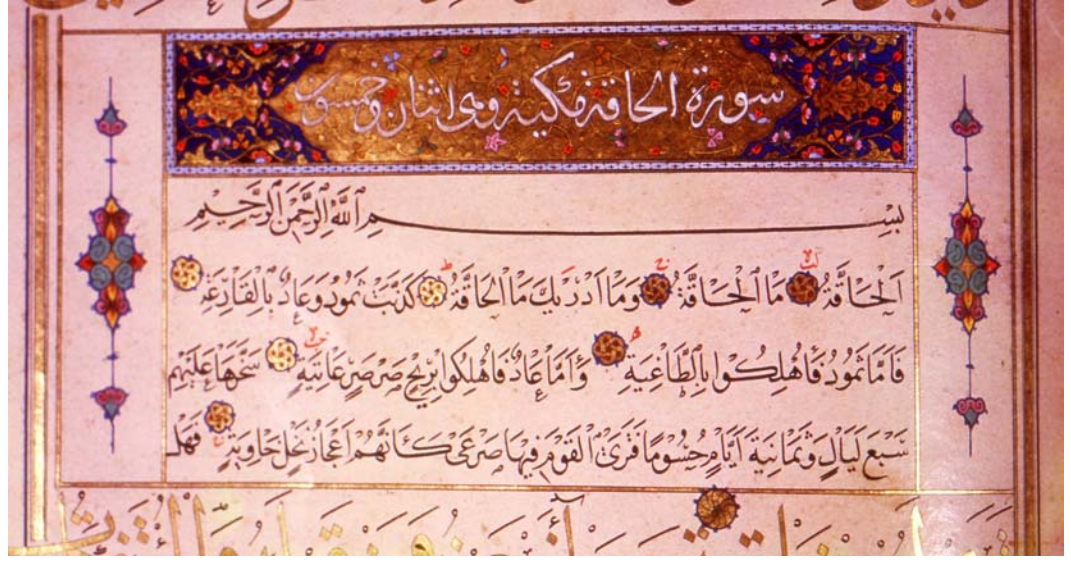 سورة الحاقة مكية وهى اثنان وخمسون
بِسْمِ ٱللَّهِ ٱلرَّحْمَٰنِ ٱلرَّحِيمِ
اَلْحَاقَّةُ مَا ٱلْحَاقَّةُ وَمَا اَدْرٰيكَ مَا الْحَاقَّةُ كَذَّبَتْ ثَمُودُ وَعَادٌ بِالْقَارِعَةِ
فَاَمَّا ثَمُودُ فَاُهْلِكُوا بِالطَّاغِيَةِ وَاَمَّا عَادٌ فَاُهْلِكُوا بِرِيحٍ صَرْصَرٍ عَاتِيَةٍ سَخَّرَهَا عَلَيْهِمْ
سَبْعَ لَيَالٍ وَثَمَانِيَةَ اَيَّامٍ حُسُومًا فَتَرَى ٱلْقَوْمَ فِيهَا صَرْعَىٰ كَاَنَّهُمْ اَعْجَازُ نَخْلٍ خَاوِيَةٍ فَهَلْ